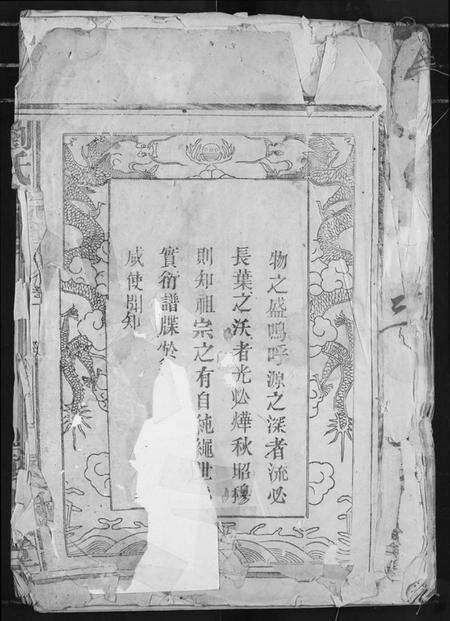 物之盛嗚呼源之深者流必
長葉之沃者光必燁秋昭穆
則知祖宗之有自純繩世
實衍譜牒於
咸使聞知
三